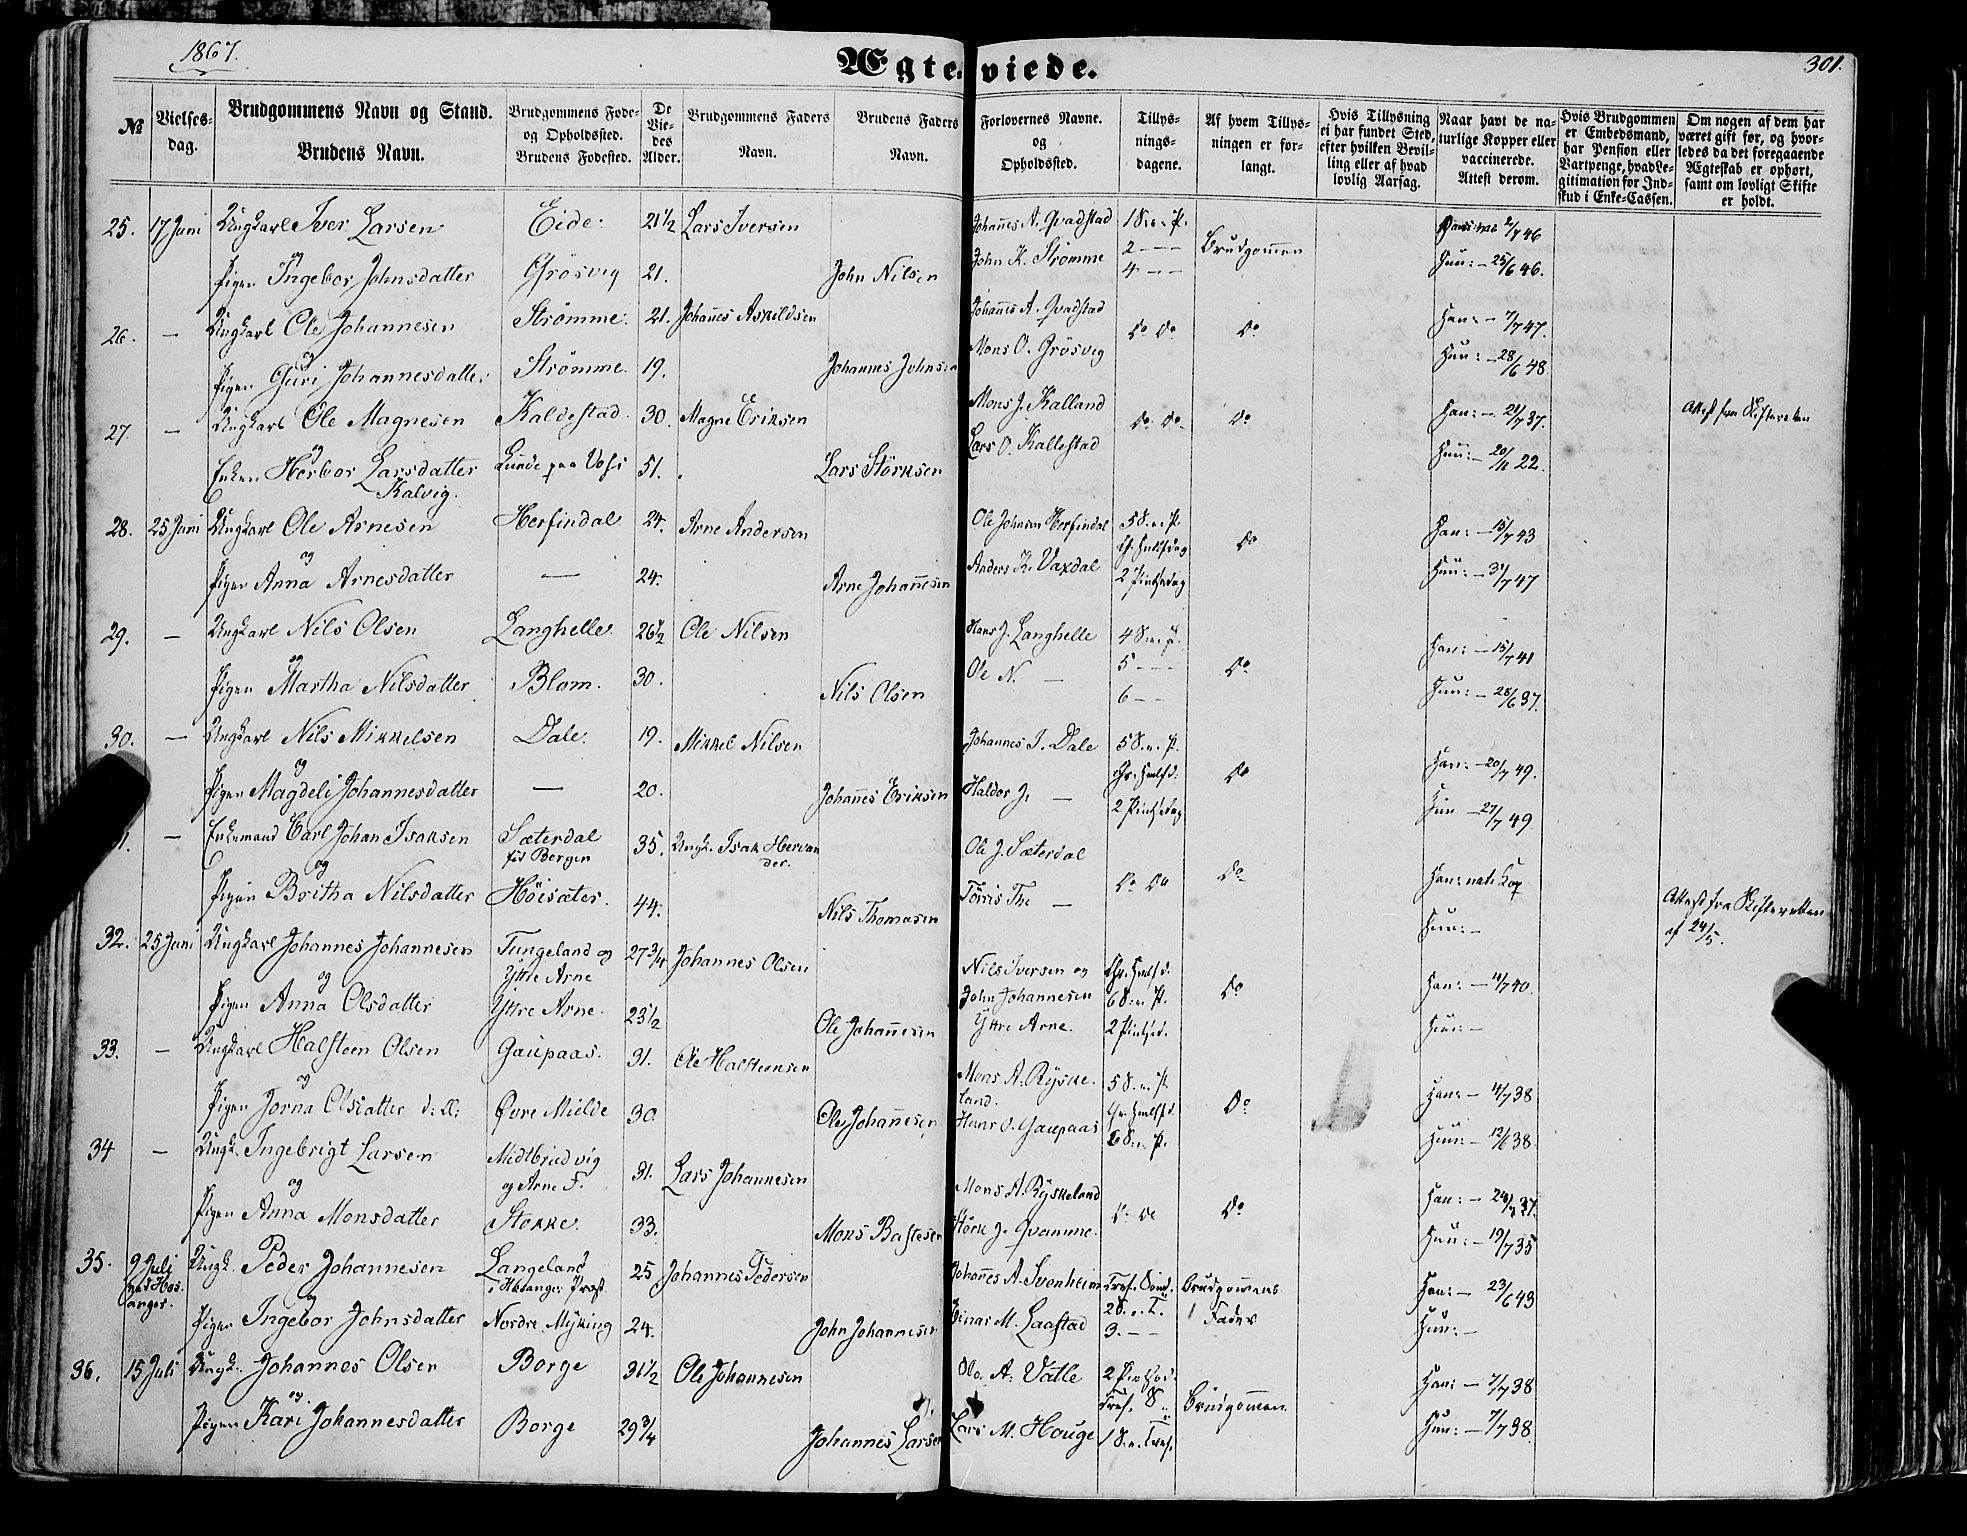 1867.
Ægteviede.
301.
№
Vielses-
dag.
Brudgommens Navn og Stand.
Brudens Navn.
Brudgommens Føde-
og Opholdssted.
Brudens Fødested.
De
Vie-
des
Alder.
Brudgommens Faders
Navn.
Brudens Faders
Navn.
Forlovernes Navne.
og
Opholdssted.
Tillys-
nings-
dagene.
Af hvem Tillys-
ningen er for-
langt.
Hvis Tillysning
ei har fundet Sted,
efter hvilken Bevil-
ling eller af hvad
lovlig Aarsag.
Naar havt de na-
turlige Kopper eller
vaccinerede.
Attest derom.
Hvis Brudgommen
er Embedsmand,
har Pension eller
Vartpenge, hvad Le-
gitimation for Ind-
skud i Enke-Cassen.
Om nogen af dem har
været gift før, og hvor-
ledes da det foregaaende
Ægteskab er ophørt,
samt om lovligt Skifte
er holdt.
25. 17 Juni Ungkarl Iver Larsen Eide. 21½ Lars Iversen Johannes A. Qvadstad 1 S. e. P. 2/7 46
og John K. Strømme 2 — — Brudgommen
Pigen Ingebor Johnsdatter Grøsvig 21. John Nilsen 4 — — Hun: — 25/6 46.
26. — Ungkarl Ole Johannesen Strømme. 21. Johannes Askildsen Johannes A. Qvadstad Do Do Do Han: — 7/7 47.
og
Pigen Guri Johannesdatter Strømme. 19. Johannes Johnsen Mons O. Grøsvig Hun: — 28/6 48
27. — Ungkarl Ole Magnesen Kaldestad 30. Magne Eriksen Mons J. Kalland Do Do Do Han: — 21/7 37. Attest fra Skifteretten
og
Enken Herbor Larsdatter Lunde paa Voss 51. Lars Størksen Lars O. Kallestad Hun: — 20/11 22.
Kalvig.
28. 25 Juni Ungkarl Ole Arnesen Herfindal 24. Arne Andersen Ole Johnsen Herfindal 5 S. e. P. Do Han: — 15/7 43
og
Pigen Anna Arnesdatter — 24. Arne Johannesen Anders K. Vaxdal 2 Pintsedag Hun: — 31/7 47
29. — Ungkarl Nils Olsen Langhelle. 26½ Ole Nilsen Hans J. Langhelle 4 S. e. P. Han: — 15/7 41
og Ole N. — 5 — — Do
Pigen Martha Nilsdatter Blom. 30. Nils Olsen 6 — — Hun: — 28/6 37.
30. — Ungkarl Nils Mikkelsen Dale. 19. Mikkel Nilsen Johannes I. Dale 5 S. e. P. Han: — 20/7 49.
og Chr. Himlf d. Do
Pigen Magdeli Johannesdatter — 20. Johannes Eriksen Haldor J. — 2 Pintsedag Hun — 27/7 49
— Enkemand Carl Johan Isaksen Sæterdal 35. Ungk. Isak Hervan Ole J. Sæterdal Do Do Do Han: nat. Kop
og fød Bergen der.
Pigen Britha Nilsdatter Höisæter. 44. Nils Thomasen Tørris Th. — Hun: — Attest fra Skifteretten
af 24/5.
32. 25 Juni Ungkarl Johannes Johannesen Tungeland og 27¾ Johannes Olsen Nils Iversen og Chr. Himlf d. Do Han: — 4/7 40.
og Yttre Arne John Johannesen 6 S. e. P.
Pigen Anna Olsdatter Yttre Arne. 23½ Ole Johannesen Yttre Arne. 2 Pintsed. Hun: —
33. — Ungkarl Halsteen Olsen Gaupaas. 31. Ole Halsteensen Mons A. Rÿske- 5 S. e. P. Han: — 4/7 38
og land. Chr. Himlf d. Do
Pigen Jorna Olsdatter Øvre Mielde 30. Ole Johannesen Hans O. Gaupaas 6 S. e. P. Hun: — 12/6 38.
34 — Ungk. Ingebrigt Larsen Midtbriedvig 31. Lars Johannesen Mons A. Rÿskeland Do Do Do Han: — 24/7 37.
og og Arne F.
Pigen Anna Monsdatter Stokke. 33. Mons Bastesen Størk J. Qvamme. Hun: — 19/7 35
35. 9 Juli Ungk. Peder Johannesen Langeland 25 Johannes Pedersen Johannes A. Svenheim Tref. Sönd. Brudgommens Han: — 23/6 43
ved Hos- i Hosanger Præst. 2 S. e. T. Fader
anger. og
Pigen Ingebor Johnsdatter Nordre Mÿking 24. John Johannesen Einar M. Laastad 3. — — Hun: —
36. 15 Juli Ungk. Johannes Olsen Borge 31½ Ole Johannesen Ole A. Vatle 2 Pintsed. Brudgommen Han: — 7/7 38
og Tref. S.
Pigen Kari Johannesdatter Borge 29¾ Johannes Larsen Lars M. Houge 1 S. e. Tref. Hun: — 7/7 38.